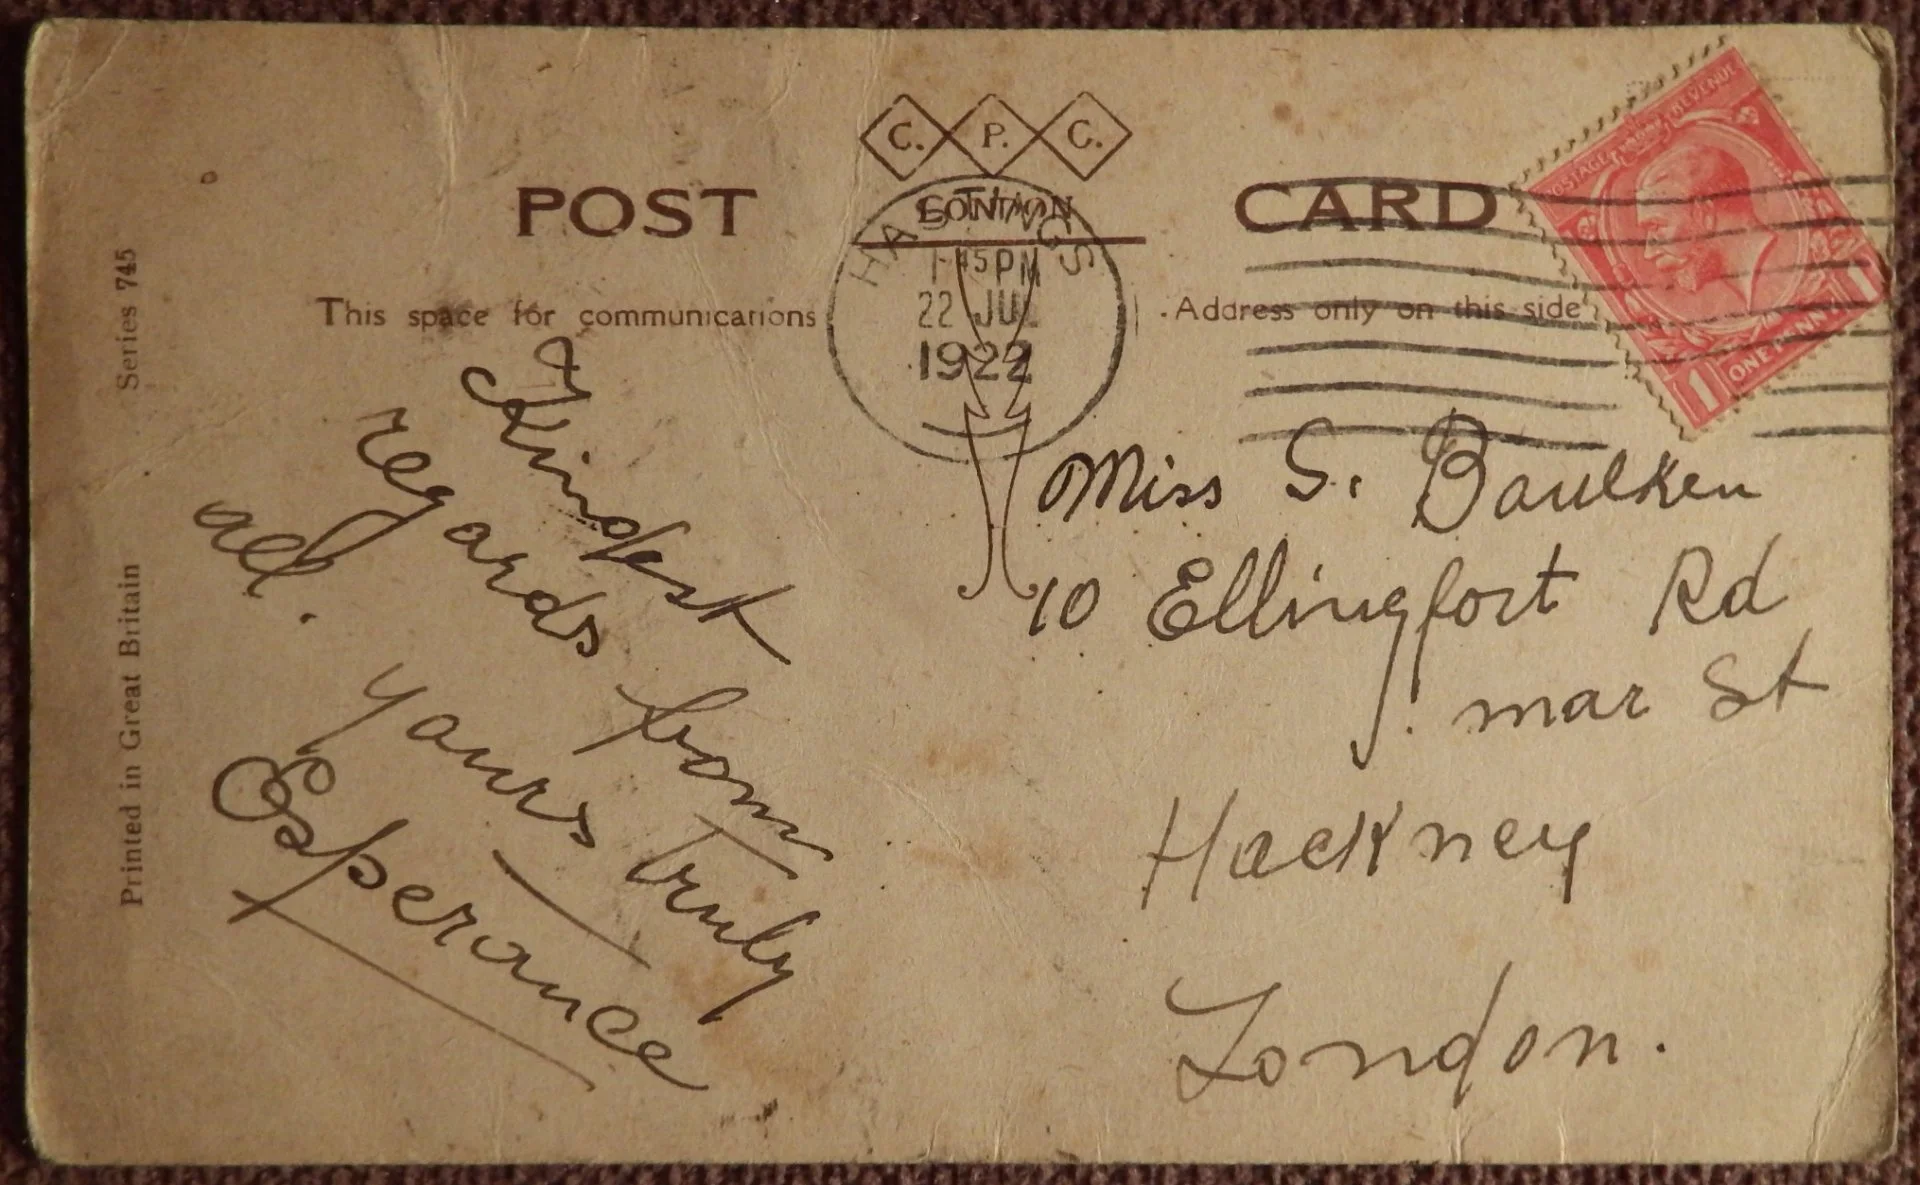 C. P. C.
LONDON
POST CARD
HASTINGS
1 45 PM
22 JUL
1922
POSTAGE REVENUE
1 ONE PENNY 1
This space for communications
Address only on this side
Series 745
Printed in Great Britain
Kindest
regards from
all.
yours truly
Esperance
Miss S. Baulken
10 Ellingfort Rd
mar St
Hackney
London.